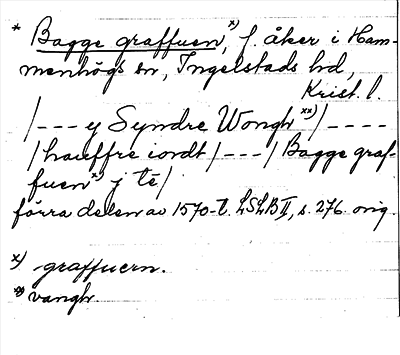 * Bagge graffuen, x) f. åker i Ham-
menhögs sn, Ingelstads hd,
Krist. l.
/--- y Syndre Wongh xx)/----
/hauffre iordt/---/Bagge graf-
fuen x) j te/
förra delen av 1570-t. LSLB II, s. 276. orig.
x) graffuern.
xx) vangh.